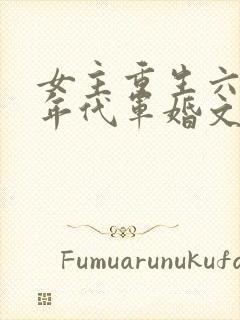 女主重生六
年代军婚文
Fumuarunukufa